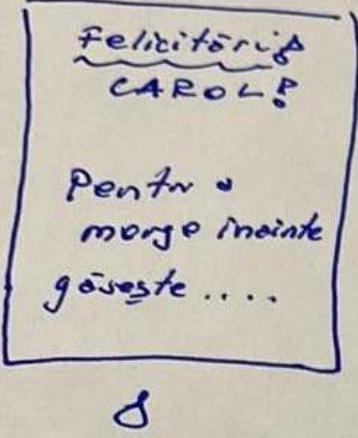 Felicitări!
CAROL!
Pentru a
merge înainte
găsește ....
8